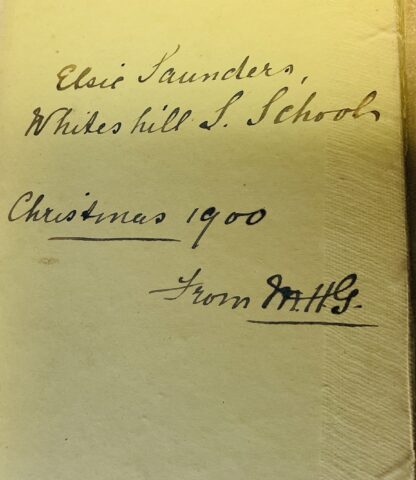 Elsie Saunders,
Whiteshill S. School
Christmas 1900
From M.H.G.